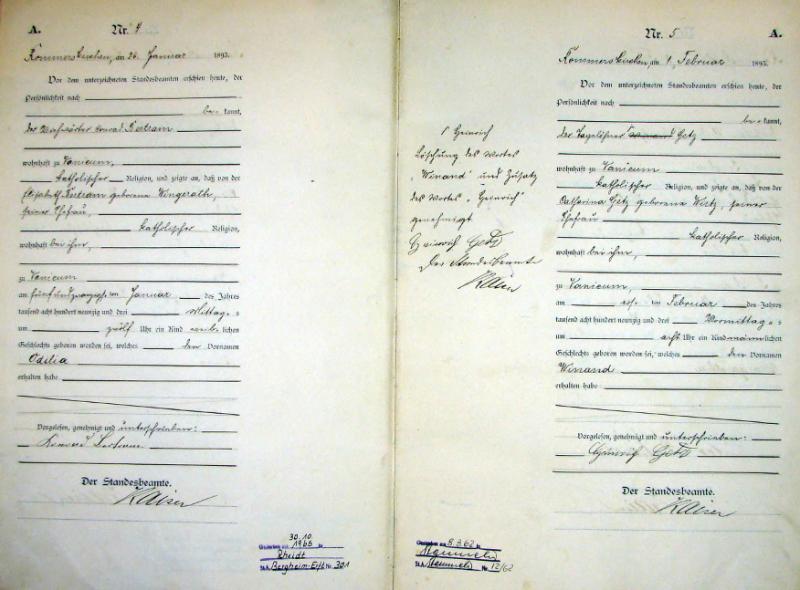 A.
Nr. 4
Kommerskirchen, am 26. Januar 1893.
Vor dem unterzeichneten Standesbeamten erschien heute, der
Persönlichkeit nach
be- kannt,
der Konrad Bertram
wohnhaft zu Vanicum,
katholischer Religion, und zeigte an, daß von der
Elisabeth Bertram geborene Wingerath,
seiner Ehefrau,
katholischer Religion,
wohnhaft bei ihm,
zu Vanicum
am fünfundzwanzigsten Januar des Jahres
tausend acht hundert neunzig und drei Mittags
um zwölf Uhr ein Kind weiblichen
Geschlechts geboren worden sei, welches den Vornamen
Odilia
erhalten habe
Vorgelesen, genehmigt und unterschrieben:
Konrad Bertram
Der Standesbeamte.
Kaiser
30.10.
1965
Rheidt
St.A. Bergheim-Erft Nr. 301
1 Heinrich
Löschung des Wortes
"Winand" und Zusatz
des Wortes "Heinrich"
genehmigt
Heinrich Getz
Der Standesbeamte
Kaiser
8.3.62
St.A. Nr. 12/62
Nr. 5
A.
Kommerskirchen, am 1. Februar 1893.
Vor dem unterzeichneten Standesbeamten erschien heute, der
Persönlichkeit nach
be- kannt,
der Tagelöhner Winand Getz
wohnhaft zu Vanicum
katholischer Religion, und zeigte an, daß von der
Catharina Getz geborene Wirtz, seiner
Ehefrau
katholischer Religion,
wohnhaft bei ihm,
zu Vanicum,
am ersten Februar des Jahres
tausend acht hundert neunzig und drei Vormittags
um acht Uhr ein Kind männlichen
Geschlechts geboren worden sei, welches den Vornamen
Winand
erhalten habe
Vorgelesen, genehmigt und unterschrieben:
Heinrich Getz
Der Standesbeamte.
Kaiser